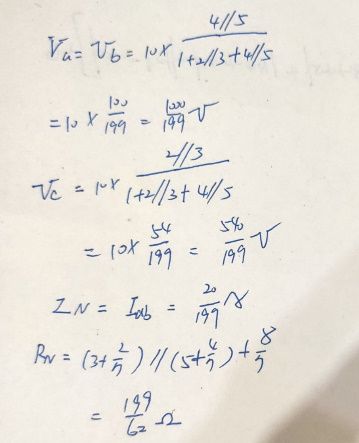 Va = Vb = 10 × 4//5 / (1+2//3+4//5)
= 10 × 100/199 = 1000/199 V
Vc = 10 × 2//3 / (1+2//3+4//5)
= 10 × 54/199 = 540/199 V
IN = Iab = 20/199 A
RN = (3+2/7) // (5+4/7) + 8/7
= 199/62 Ω